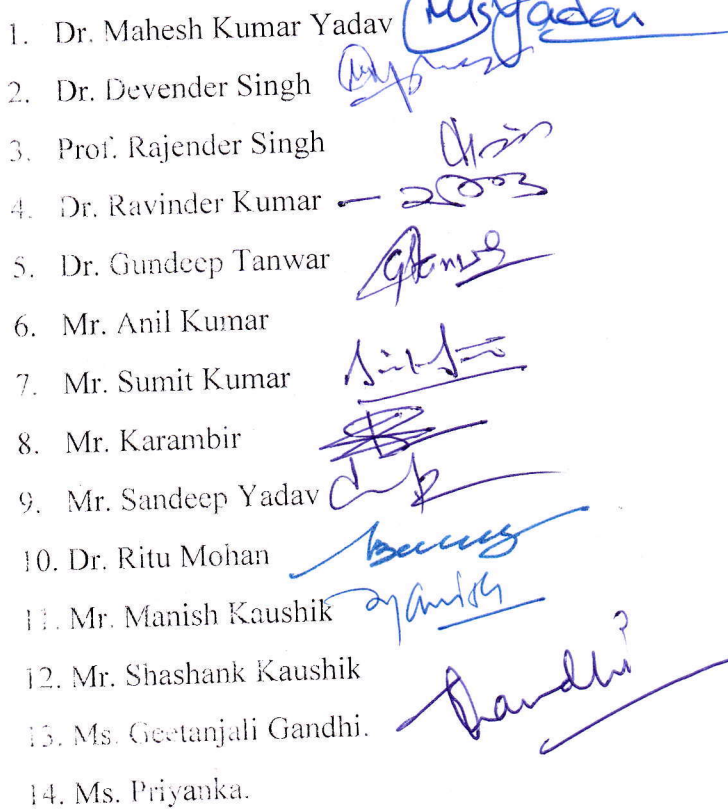 1. Dr. Mahesh Kumar Yadav
2. Dr. Devender Singh
3. Prof. Rajender Singh
4. Dr. Ravinder Kumar —
5. Dr. Gundeep Tanwar
6. Mr. Anil Kumar
7. Mr. Sumit Kumar
8. Mr. Karambir
9. Mr. Sandeep Yadav
10. Dr. Ritu Mohan
11. Mr. Manish Kaushik Manish
12. Mr. Shashank Kaushik
13. Ms. Geetanjali Gandhi.
14. Ms. Priyanka.